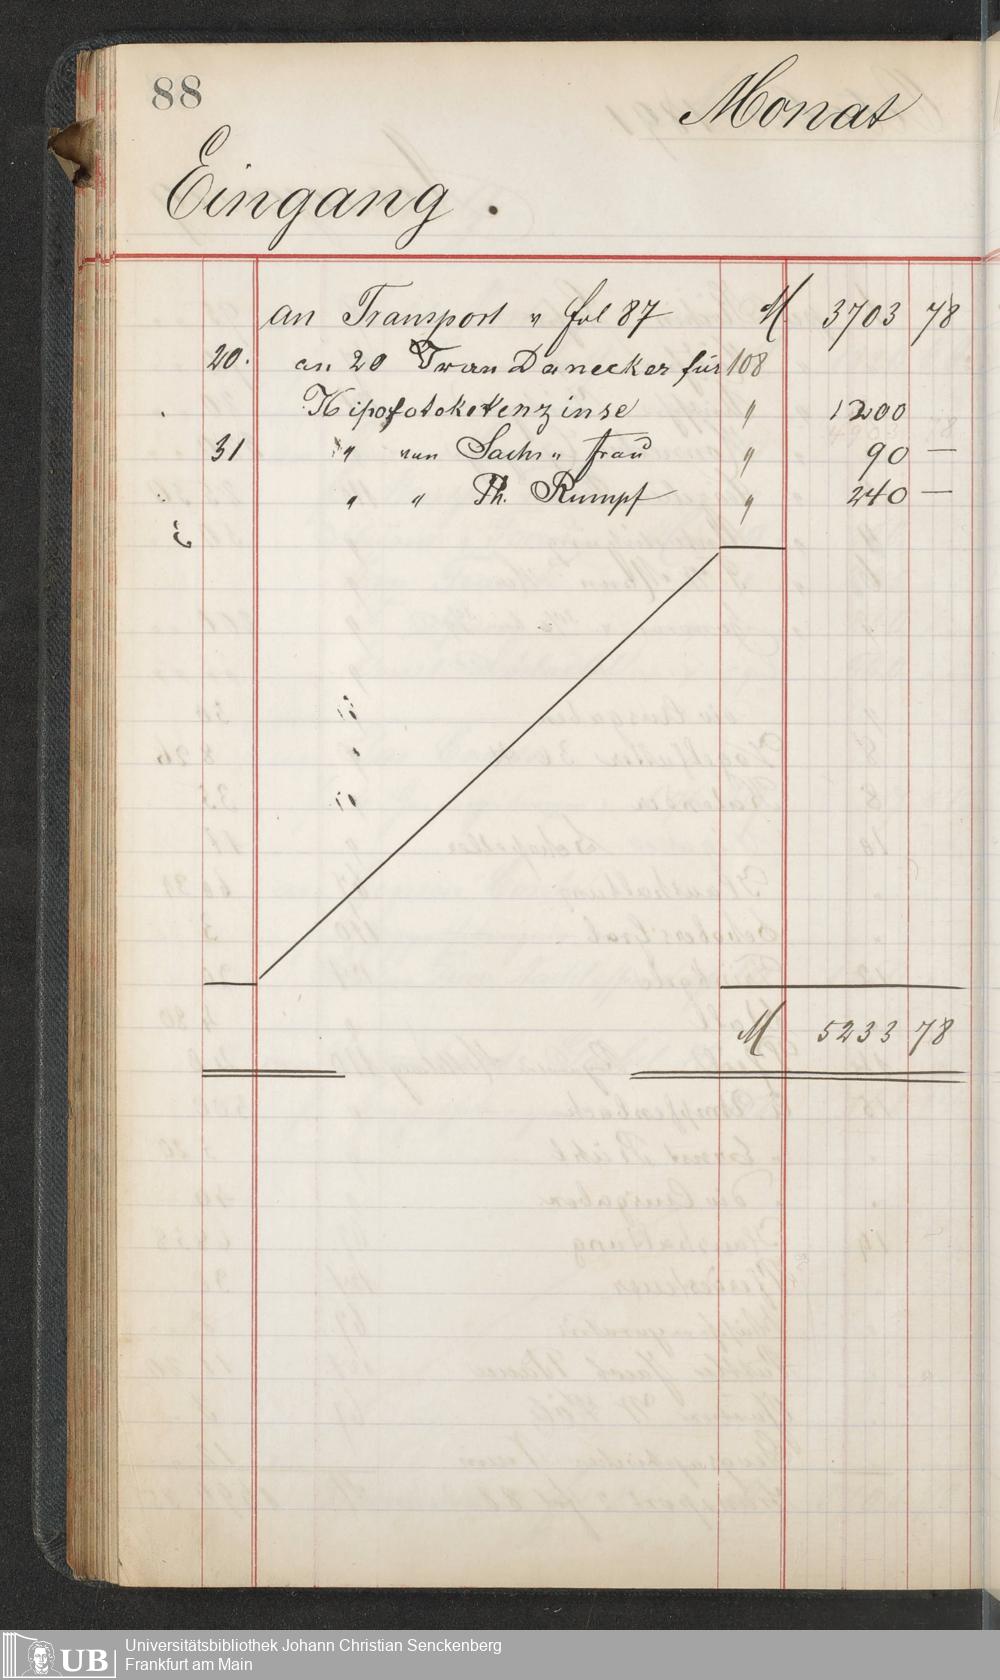 88
Monat
Eingang.
an Transport v fol 87 M 3703 78
20. an 20 Frau Danecker für 108
Hipofotoketenzinse " 1200
31 " von Sachs " frau " 90 —
" " Th. Rumpf " 240 —
M 5233 78
UB
Universitätsbibliothek Johann Christian Senckenberg
Frankfurt am Main